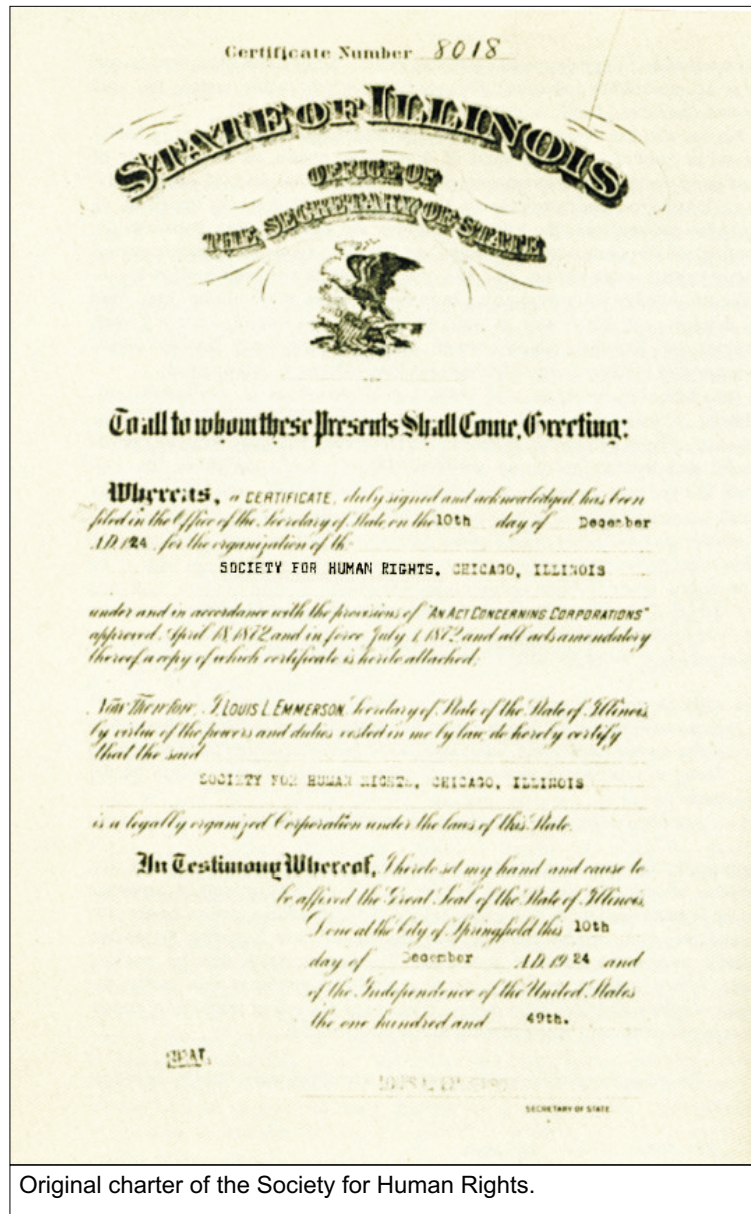 Certificate Number 8018
STATE OF ILLINOIS
OFFICE OF
THE SECRETARY OF STATE
To all to whom these Presents Shall Come, Greeting:
Whereas, a CERTIFICATE, duly signed and acknowledged has been
filed in the Office of the Secretary of State on the 10th day of December
A.D. 1924 for the organization of the
SOCIETY FOR HUMAN RIGHTS, CHICAGO, ILLINOIS
under and in accordance with the provisions of "AN ACT CONCERNING CORPORATIONS"
approved April 18, 1872, and in force July 1, 1872, and all acts amendatory
thereof, a copy of which certificate is hereto attached;
Now Therefore, I, LOUIS L. EMMERSON, Secretary of State of the State of Illinois,
by virtue of the powers and duties vested in me by law, do hereby certify
that the said
SOCIETY FOR HUMAN RIGHTS, CHICAGO, ILLINOIS
is a legally organized Corporation under the laws of this State.
In Testimony Whereof, I hereto set my hand and cause to
be affixed the Great Seal of the State of Illinois,
Done at the City of Springfield this 10th
day of December A.D. 1924 and
of the Independence of the United States
the one hundred and 49th.
SECRETARY OF STATE.
Original charter of the Society for Human Rights.